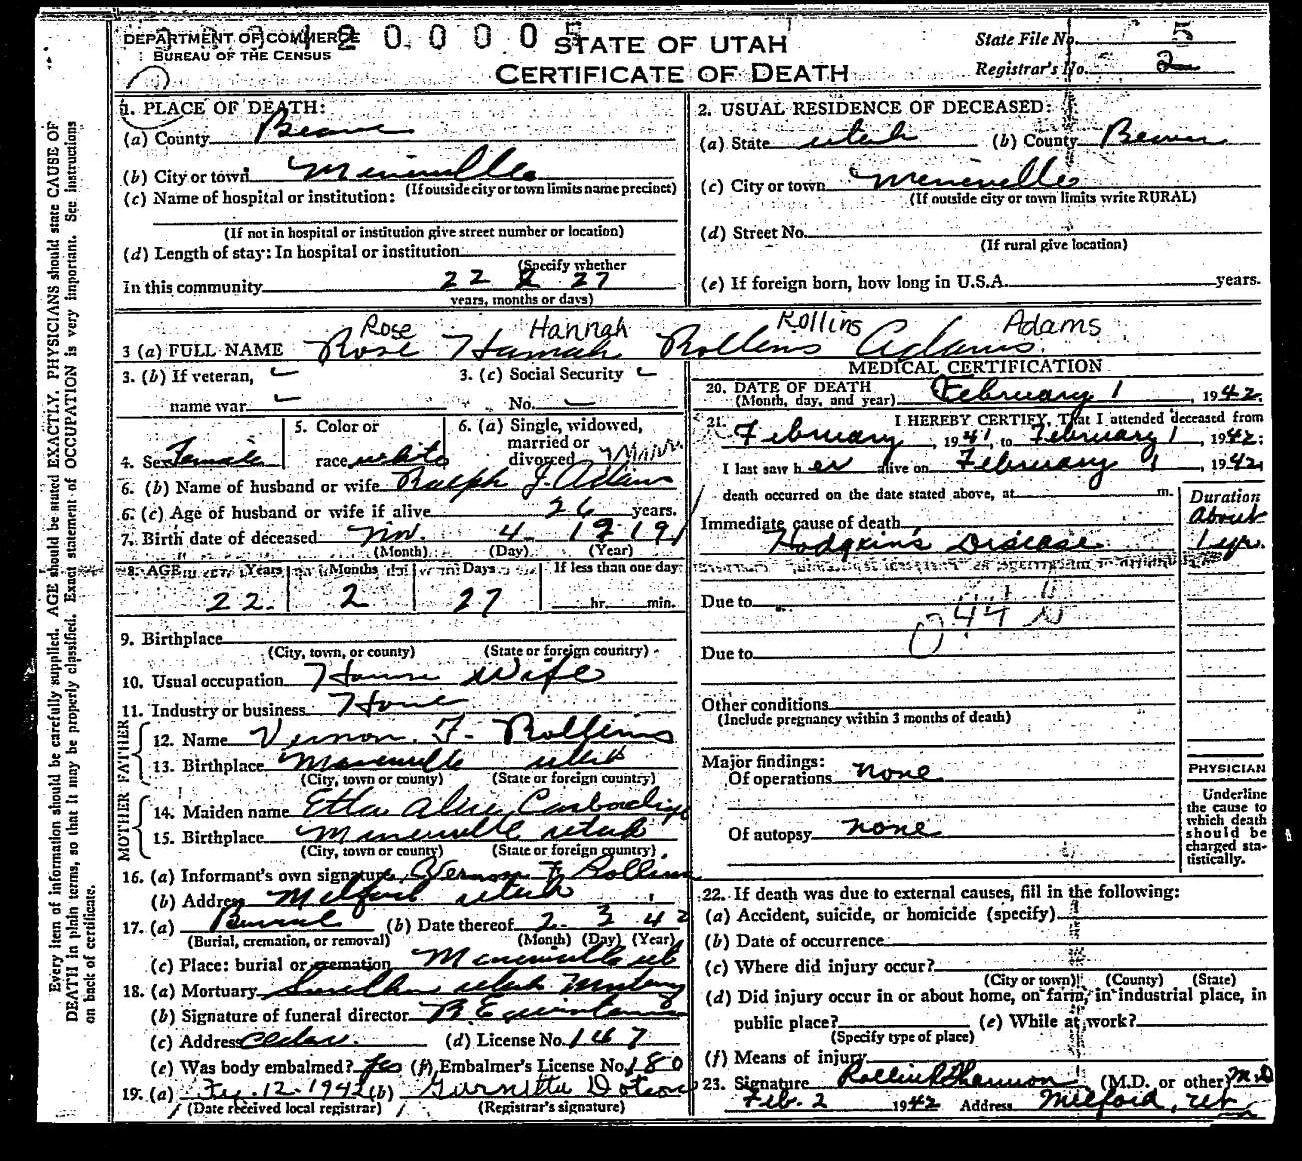 DEPARTMENT OF COMMERCE
BUREAU OF THE CENSUS
2 0 0 0 0 5
STATE OF UTAH
CERTIFICATE OF DEATH
State File No. 5
Registrar's No. 2
Every item of information should be carefully supplied. AGE should be stated EXACTLY. PHYSICIANS should state CAUSE OF
DEATH in plain terms, so that it may be properly classified. Exact statement of OCCUPATION is very important. See instructions
on back of certificate.
1. PLACE OF DEATH:
(a) County Beaver
(b) City or town Minersville
(If outside city or town limits name precinct)
(c) Name of hospital or institution:
(If not in hospital or institution give street number or location)
(d) Length of stay: In hospital or institution
(Specify whether
In this community 22 2 27
years, months or days)
2. USUAL RESIDENCE OF DECEASED:
(a) State Utah (b) County Beaver
(c) City or town Minersville
(If outside city or town limits write RURAL)
(d) Street No.
(If rural give location)
(e) If foreign born, how long in U.S.A. years.
Rose Hannah Rollins Adams
3 (a) FULL NAME Rose Hannah Rollins Adams
3. (b) If veteran,
name war
3. (c) Social Security
No.
4. Sex Female
5. Color or
race white
6. (a) Single, widowed,
married or
divorced
6. (b) Name of husband or wife Ralph J. Adams
6. (c) Age of husband or wife if alive 26 years.
7. Birth date of deceased Nov. 4 1919
(Month) (Day) (Year)
8. AGE Years Months Days If less than one day
22 2 27 hr. min.
9. Birthplace
(City, town, or county) (State or foreign country)
10. Usual occupation House Wife
11. Industry or business Home
FATHER
12. Name Vernon F. Rollins
13. Birthplace Minersville Utah
(City, town or county) (State or foreign country)
MOTHER
14. Maiden name Etta
15. Birthplace Minersville Utah
(City, town or county) (State or foreign country)
16. (a) Informant's own signature Vernon F Rollins
(b) Address Milford Utah
17. (a) Burial (b) Date thereof 2 3 42
(Burial, cremation, or removal) (Month) (Day) (Year)
(c) Place: burial or cremation Minersville Ut
18. (a) Mortuary Southern Utah Mortuary
(b) Signature of funeral director
(c) Address Cedar. (d) License No. 167
(e) Was body embalmed? Yes (f) Embalmer's License No. 180
19. (a) 12-1942 (b) Dotson
(Date received local registrar) (Registrar's signature)
MEDICAL CERTIFICATION
20. DATE OF DEATH
(Month, day, and year) February 1, 1942
21. I HEREBY CERTIFY, That I attended deceased from
February, 1941, to February 1, 1942;
I last saw her alive on February 1, 1942,
death occurred on the date stated above, at m.
Duration
Immediate cause of death
Hodgkin's Disease
About
1 yr.
Due to
44
Due to
Other conditions
(Include pregnancy within 3 months of death)
Major findings:
Of operations none
Of autopsy none
PHYSICIAN
Underline
the cause to
which death
should be
charged sta-
tistically.
22. If death was due to external causes, fill in the following:
(a) Accident, suicide, or homicide (specify)
(b) Date of occurrence
(c) Where did injury occur?
(City or town) (County) (State)
(d) Did injury occur in or about home, on farm, in industrial place, in
public place? (e) While at work?
(Specify type of place)
(f) Means of injury
23. Signature (M.D. or other) M.D
Feb. 2 1942 Address Milford, Utah